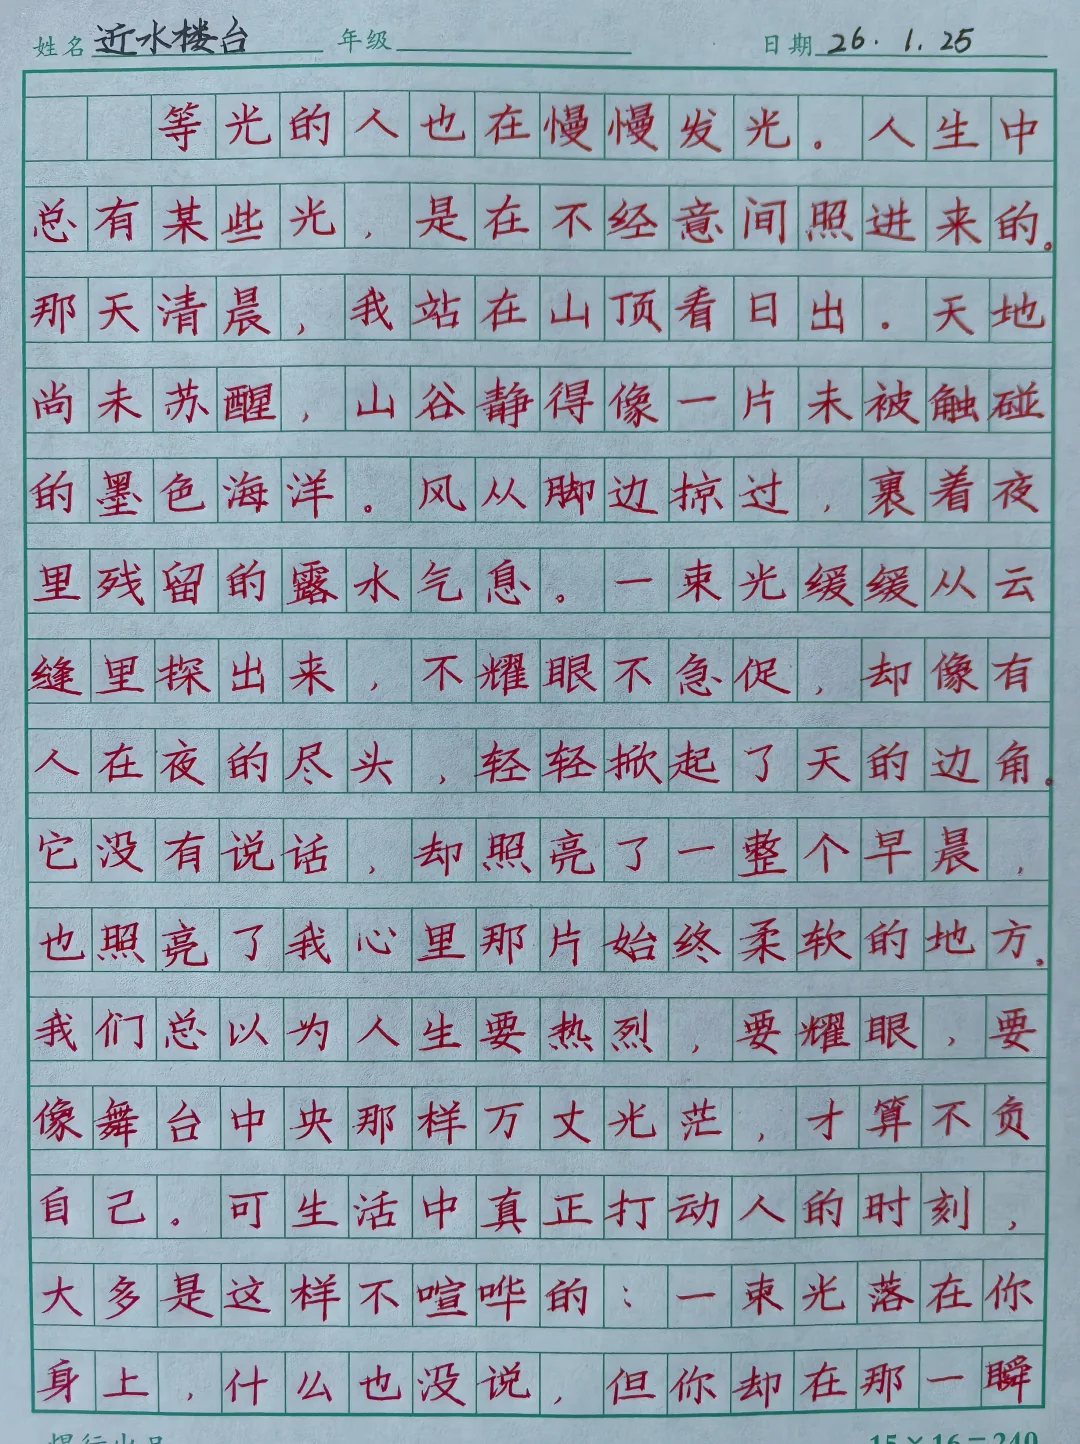 姓名 近水楼台 年级 日期 26.1.25
等光的人也在慢慢发光。人生中
总有某些光,是在不经意间照进来的。
那天清晨,我站在山顶看日出.天地
尚未苏醒,山谷静得像一片未被触碰
的墨色海洋。风从脚边掠过,裹着夜
里残留的露水气息。一束光缓缓从云
缝里探出来,不耀眼不急促,却像有
人在夜的尽头,轻轻掀起了天的边角。
它没有说话,却照亮了一整个早晨,
也照亮了我心里那片始终柔软的地方。
我们总以为人生要热烈,要耀眼,要
像舞台中央那样万丈光茫,才算不负
自己。可生活中真正打动人的时刻,
大多是这样不喧哗的:一束光落在你
身上,什么也没说,但你却在那一瞬
15×16=240